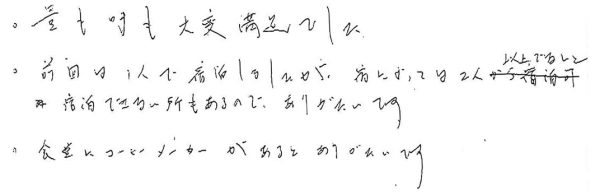 。量も味も大変満足でした
。前回は1人で宿泊しましたが、宿によっては2人以上でないと
宿泊できない所もあるので、ありがたいです
。食堂にコーヒーメーカーがあるとありがたいです